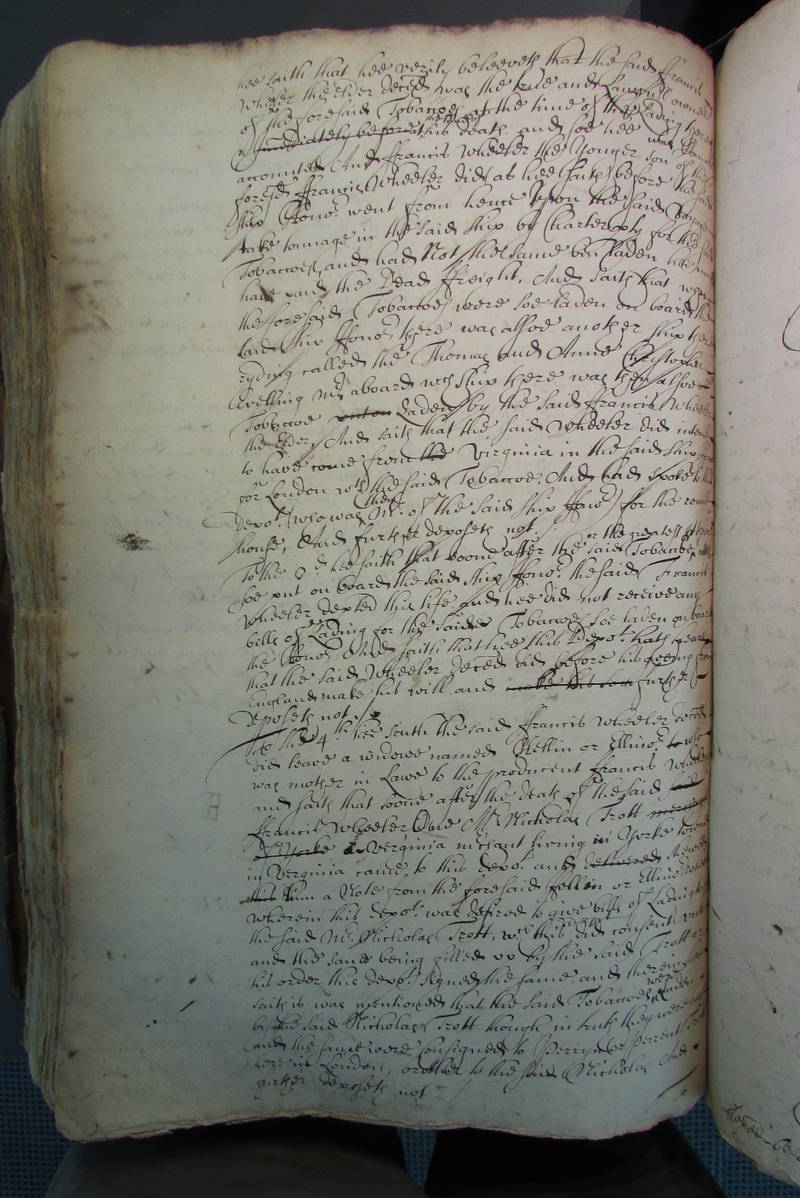 hee saith that hee verily beleeveth that the said Francis
Wheeler the elder deced was the true and Lawfull owner
of the foresaid Tobaccoes at the time of the Lading thereof
immediately before his death and soe hee was
accounted And Francis Wheeler the Younger son of the
foresd Francis Wheeler did as hee saith before the said
ship Honor went from hence Upon the said Voyage
take tonnage in the said ship by Charter pty for the said
Tobaccoes, and had Not the same ben laden hee must
have paid the Dead freight, And saith that when
the foresaid Tobaccoes were soe laden on board the
said ship Honor there was alsoe another ship there
ryding called the Thomas and Anne Christopher
Evelling Mr aboard wch ship there was then alsoe
Tobaccoe put on Laden by the said Francis Wheeler
the elder, And saith that the said Wheeler did intend
to have come from the Virginia in the said ship Honor
for London wth the said Tobaccoe, And had spoke to this
depot (who was then Mr of the said ship Honor) for the round
house, And further deposeth not./
To the 3d hee saith that soone after the said Tobaccoes or the greatest pt thereof were
soe put on board the said ship Honor the said Francis
Wheeler depted this life and hee did not receive any
bills of Lading for the said Tobaccoes soe laden on board
the Honor And saith that hee this Depot hath heard
that the said Wheeler deced did before his goeing from
England make his will and make his will further
deposeth not./
To the 4th hee saith the said Francis Wheeler deced
did leave a widowe named Ellin or Ellinor
was mother in Lawe to the producent Francis Wheeler
and saith that soone after the death of the said
Francis Wheeler One Mr Nicholas Trott
of Yorke a Virginia mrchant living in Yorke towne
in Virginia came to this depot and delivered shewed
this him a Note from the foresaid Ellin or Ellinor Wheeler
wherein this depot was desired to give bills of Lading to
the said Mr Nicholas Trott, wch this depot did consent unto
and the same being filled up by the said Trott or
his order this depot signed the same and therein as hee
saith is was mentioned that the said Tobaccoes were laden
by the said Nicholas Trott though in truth they were not
and the same were consigned to Perry
here in London, brother to the said Nicholas And
further deposeth not./